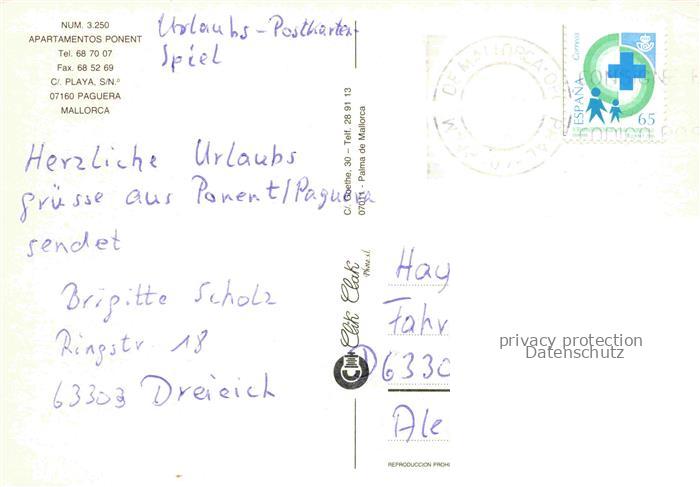 NUM. 3.250
APARTAMENTOS PONENT
Tel. 68 70 07
Fax. 68 52 69
C/. PLAYA, S/N.º
07160 PAGUERA
MALLORCA
Urlaubs-Postkarten
Spiel
Herzliche Urlaubs
grüsse aus Ponent/Paguera
sendet
Brigitte Scholz
Ringstr. 18
63303 Dreieich
C/. Goethe, 30 - Telf. 28 91 13
07011 - Palma de Mallorca
Clik Clak
Correos
ESPAÑA
65
DE MALLORCA
Hay
Fahr
D6330
Ale
privacy protection
Datenschutz
REPRODUCCION PROHI